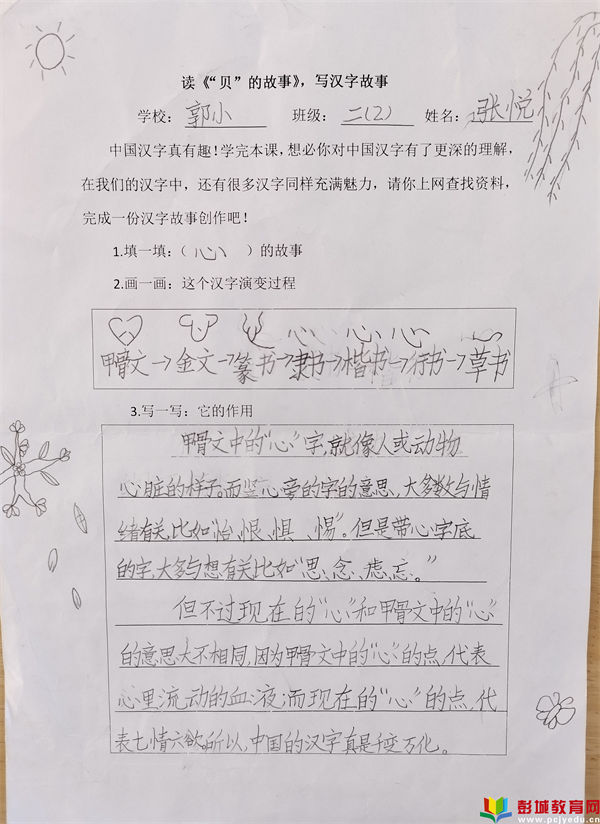 读《“贝”的故事》，写汉字故事
学校：郭小 班级：二(2) 姓名：张悦
中国汉字真有趣！学完本课，想必你对中国汉字有了更深的理解，
在我们的汉字中，还有很多汉字同样充满魅力，请你上网查找资料，
完成一份汉字故事创作吧！
1.填一填：（心）的故事
2.画一画：这个汉字演变过程
心心心
甲骨文→金文→篆书→隶书→楷书→行书→草书
3.写一写：它的作用
甲骨文中的“心”字，就像人或动物
心脏的样子。而竖心旁的字的意思，大多数与情
绪有关，比如“怡、恨、惧、惕”。但是带心字底
的字，大多与想有关比如“思、念、虑、忘。”
但不过现在的“心”和甲骨文中的“心”
的意思大不相同，因为甲骨文中的“心”的点，代表
心里流动的血液；而现在的“心”的点，代
表七情六欲。所以，中国的汉字真是千变万化。
彭城教育网
www.pcjyedu.cn